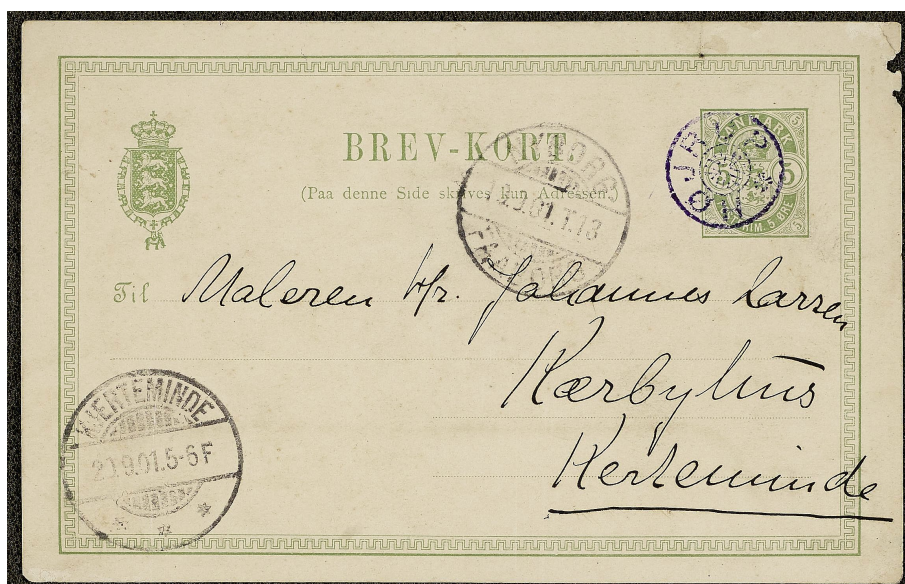 BREV-KORT
(Paa denne Side skrives kun Adressen.)
DANMARK
5
5 ØRE
Til Maleren Hr. Johannes Larsen
Kærbyhus
Kerteminde
KJERTEMINDE
20.9.01.5-6F